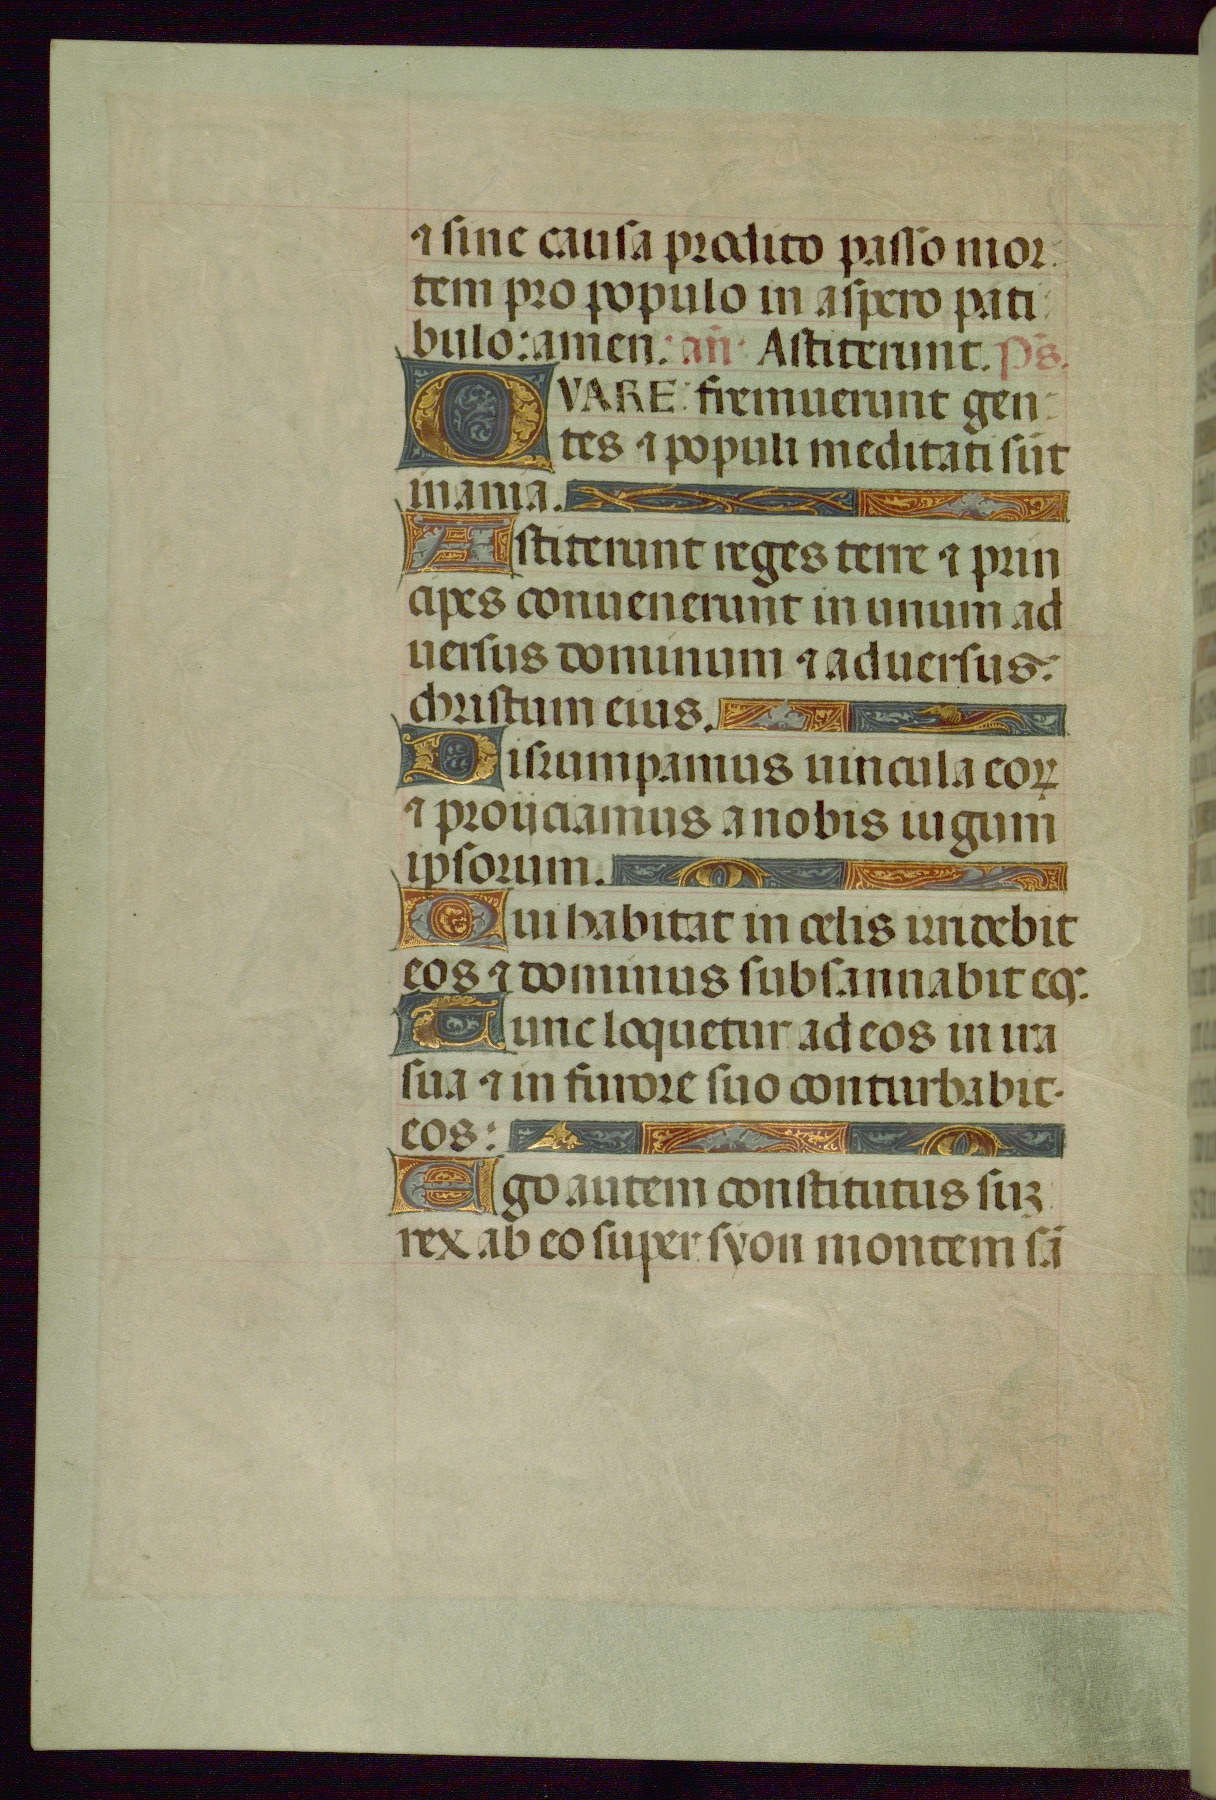 ⁊ sine causa prodito passo mor
tem pro populo in aspero pati
bulo: amen. añ Astiterunt. p̄s.
QVARE fremuerunt gen
tes ⁊ populi meditati sūt
inania.
Astiterunt reges terre ⁊ prin
cipes conuenerunt in unum ad
uersus dominum ⁊ aduersus
christum eius.
Disrumpamus uincula eoꝝ
⁊ proijciamus a nobis iugum
ipsorum.
Qui habitat in celis irridebit
eos ⁊ dominus subsannabit eos.
Tunc loquetur ad eos in ira
sua ⁊ in furore suo conturbabit
eos:
Ego autem constitutus suꝫ
rex ab eo super syon montem sā